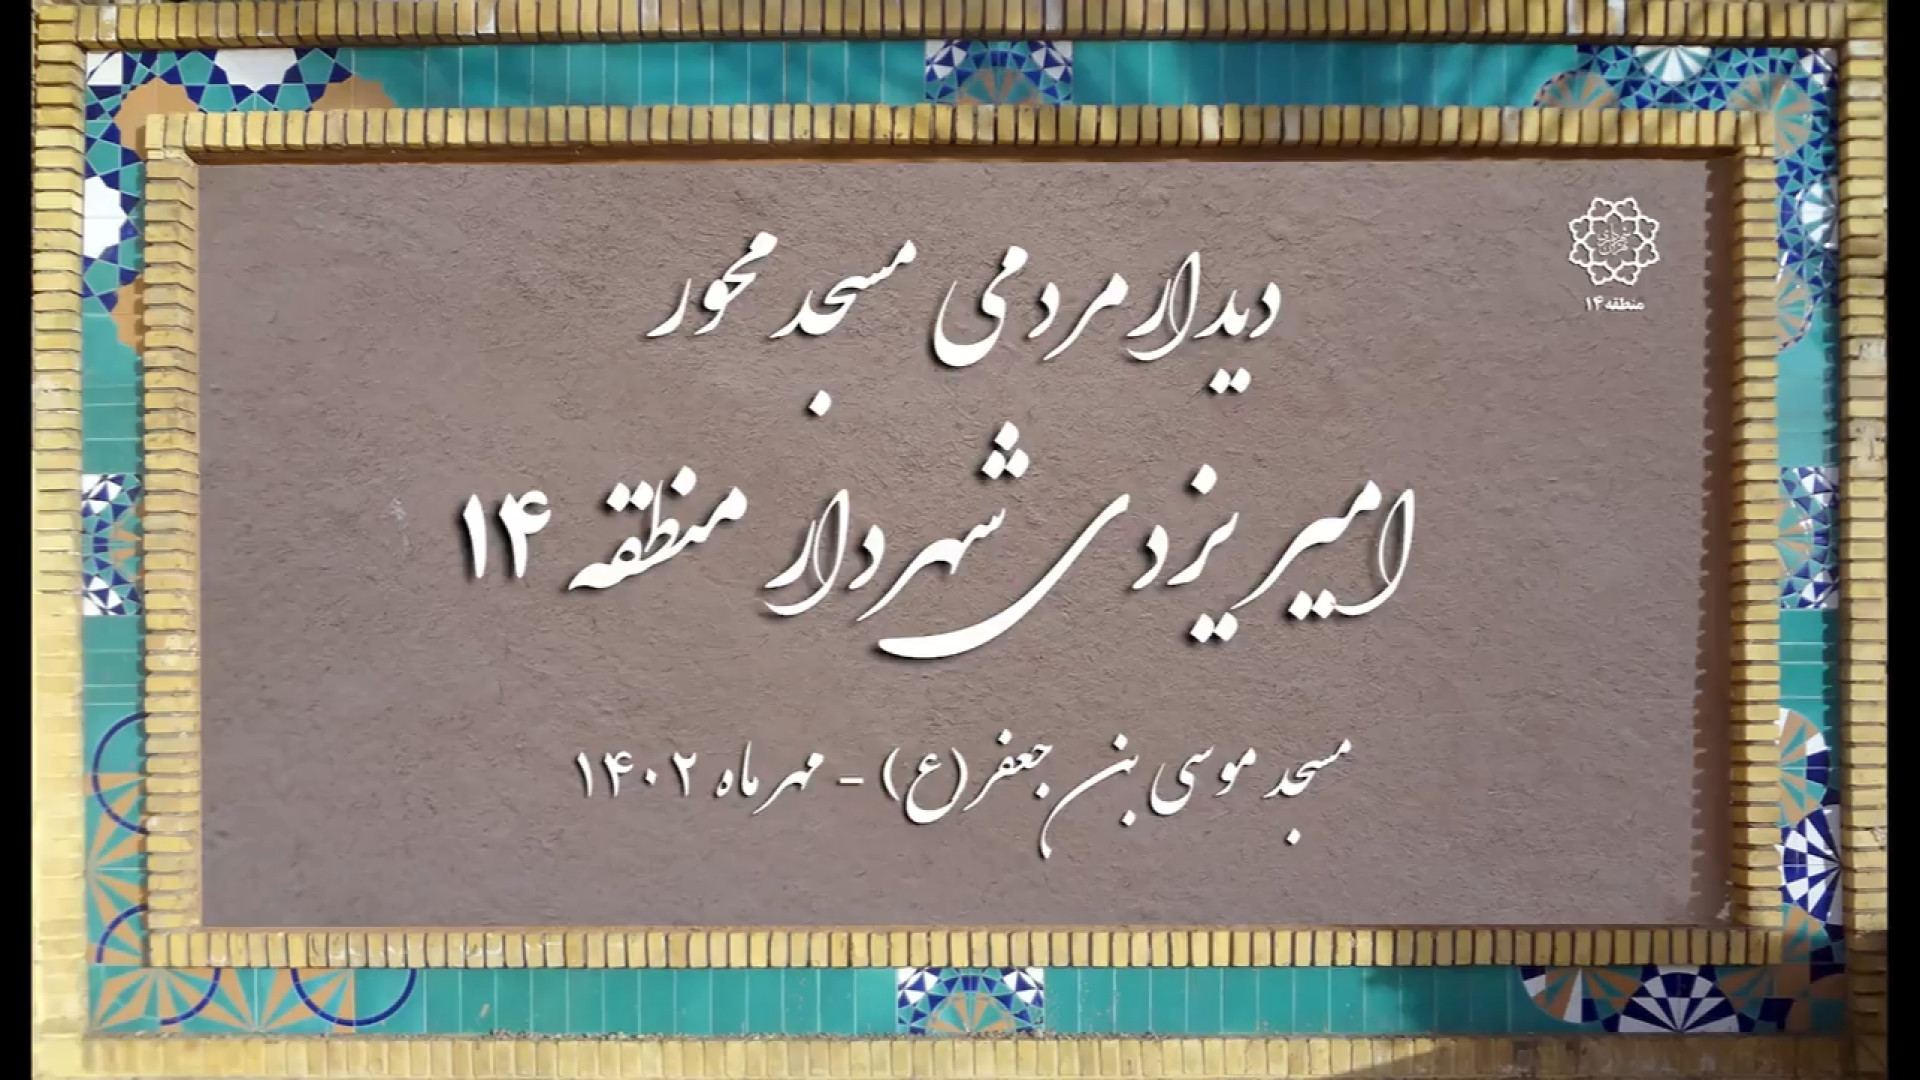 دیدار مردمی مسجد محور
امیر یزدی شهردار منطقه ۱۴
مسجد موسی بن جعفر(ع) - مهر ماه ۱۴۰۲
شهرداری تهران
منطقه ۱۴